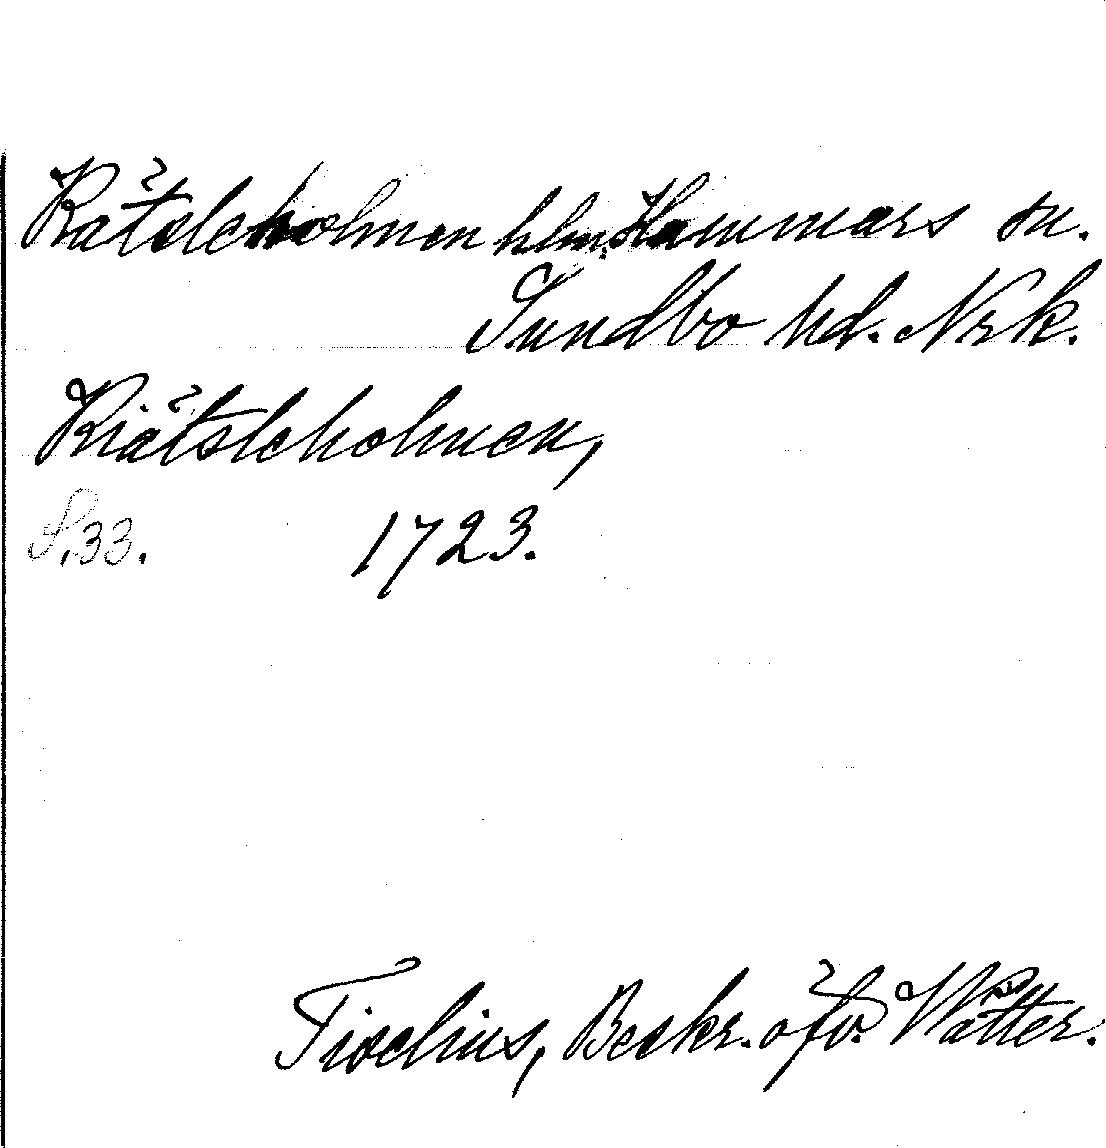 Rätsleholmen hlm. Hammars sn.
Sundbo hd. Nrk.
Riätsleholmen,
S. 33. 1723.
Tiselius, Beskr. öfv. Wätter.